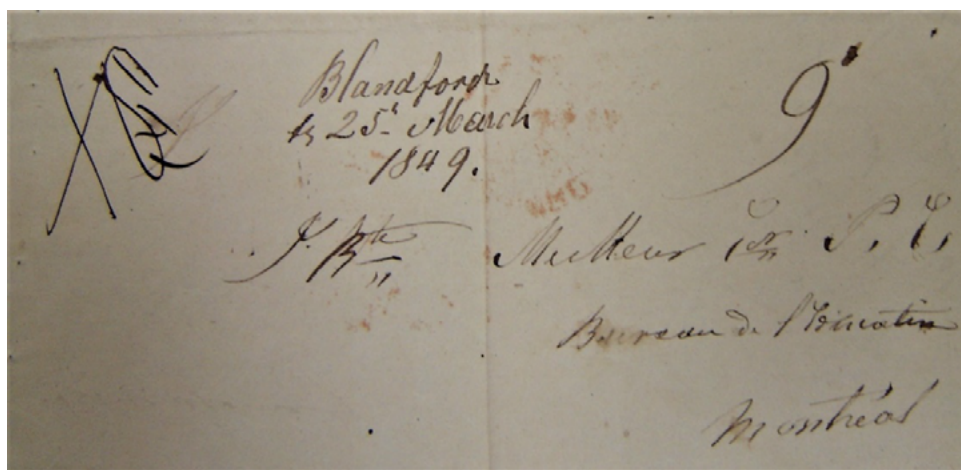 Blandford
25 March
1849.
9
J. Bte Meilleur Ecr. S. E.
Bureau de l'Education
Montréal